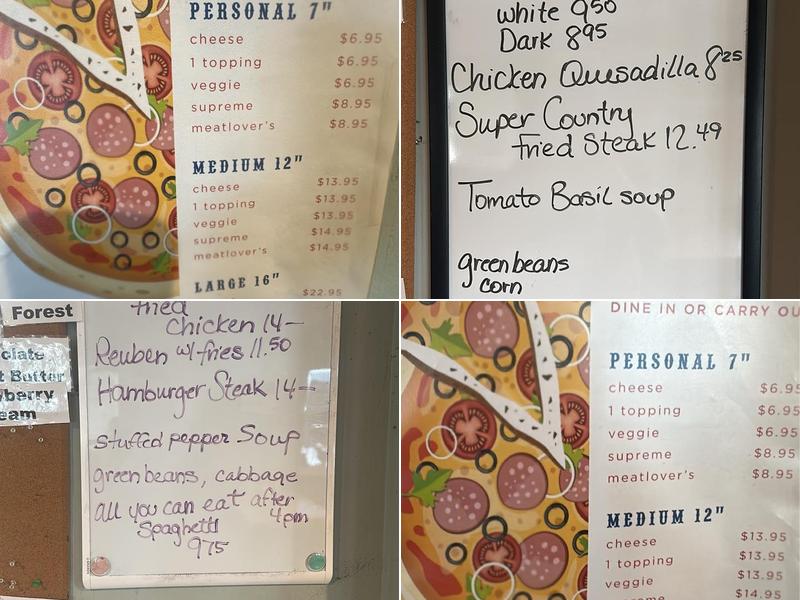 PERSONAL 7"
cheese $6.95
1 topping $6.95
veggie $6.95
supreme $8.95
meatlover's $8.95
MEDIUM 12"
cheese $13.95
1 topping $13.95
veggie $13.95
supreme $14.95
meatlover's $14.95
LARGE 16"
$22.95
white 950
Dark 895
Chicken Quesadilla 825
Super Country
fried Steak 12.49
Tomato Basil soup
green beans
corn
Forest
fried
chicken 14-
Reuben w/ fries 11.50
Hamburger Steak 14-
stuffed pepper Soup
green beans, cabbage
all you can eat after
4pm
Spaghetti
975
DINE IN OR CARRY OU
PERSONAL 7"
cheese $6.95
1 topping $6.95
veggie $6.95
supreme $8.95
meatlover's $8.95
MEDIUM 12"
cheese $13.95
1 topping $13.95
veggie $13.95
$14.95